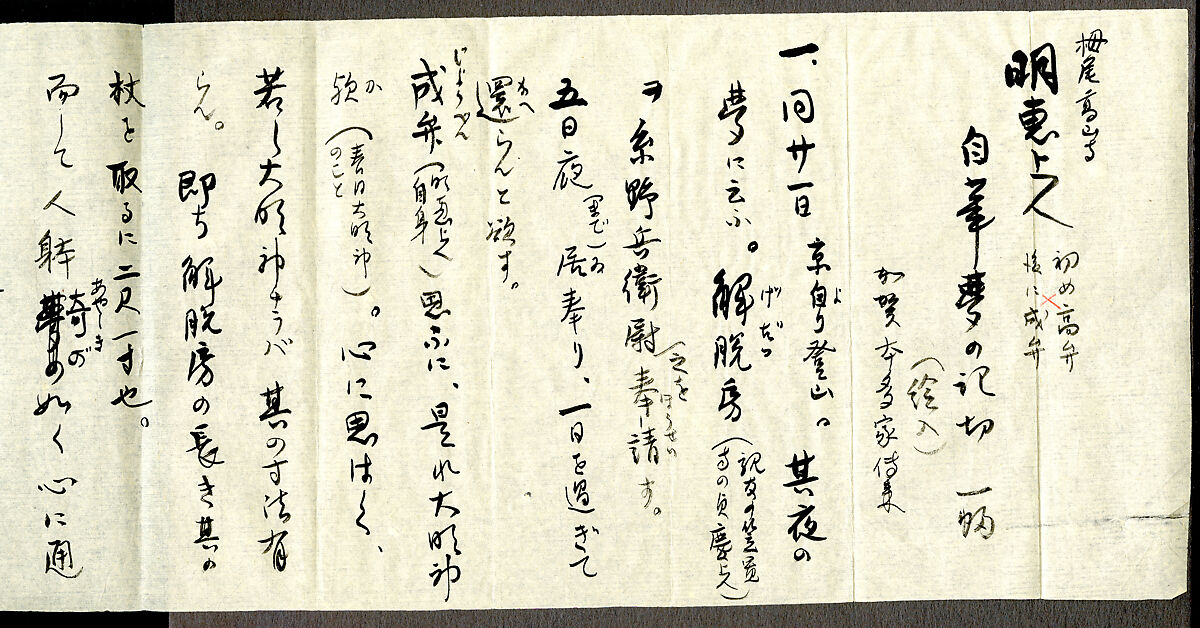 栂尾高山寺
明恵上人 初め高弁
後に成弁
自筆夢の記切 一幅
(絵入)
加賀本多家伝来
一、同廿一日 京自り登山。其夜の
より
夢に云ふ。解脱房(親友の笠置
寺の貞慶上人)
げだつ
ヲ糸野兵衛尉奉請す。
(之を
ほうせい
五日夜(まで)居奉り、一日を過ぎて
ゐ
還らんと欲す。
かへ
成弁(明恵上人
自身)思ふに、是れ大明神
じょうべん
歟(春日大明神
のこと)。心に思はく、
か
若し大明神ナラバ其の寸法有
らん。即ち解脱房の長き其の
杖を取るに二尺一寸也。
而して人躰奇の如く心に通
あやしき